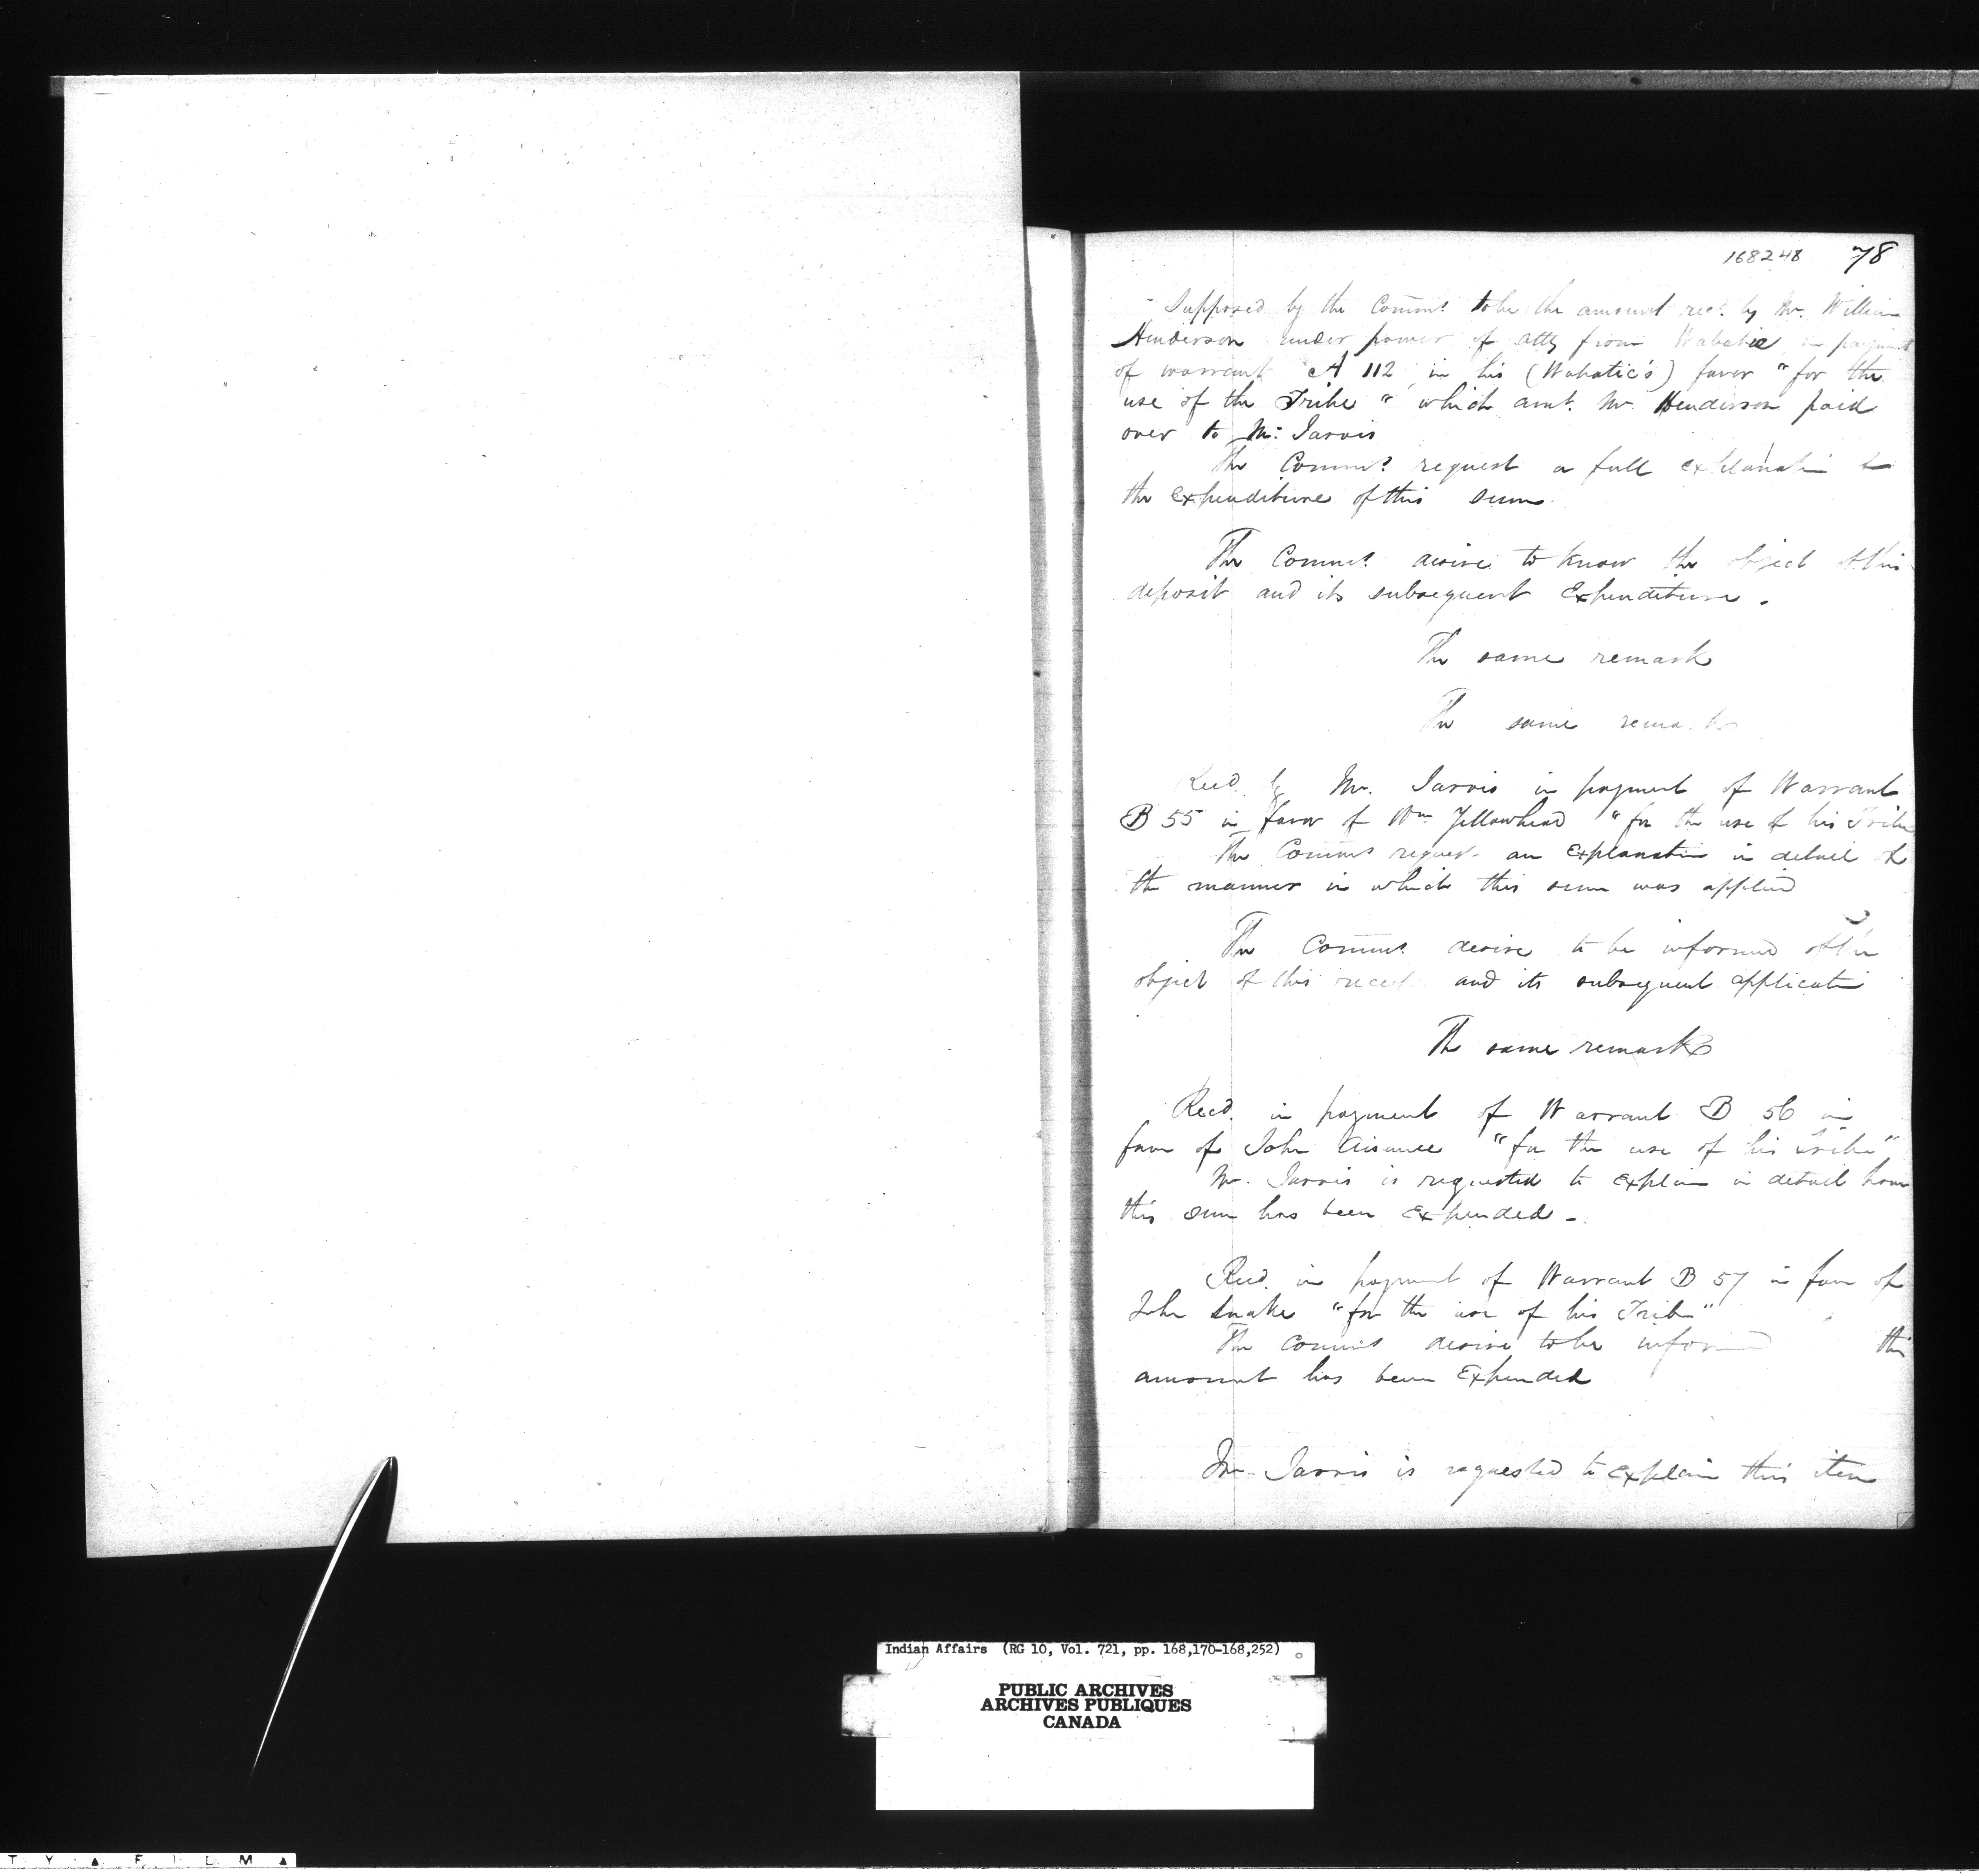 168248 78
Supposed by the Comms to be the amount recd by Mr. William
Henderson under power of atty from Wabatic in payment
of warrant A 112 in his (Wabatic's) favor "for the
use of the Tribe" which amt. Mr Henderson paid
over to Mr. Jarvis
The Comms request a full explanati
the Expenditure of this sum
The Comms desire to know the object of this
deposit and its subsequent Expenditure.
The same remark
The same remarks
Recd by Mr. Jarvis in payment of Warrant
B 55 in favor of Wm Yellowhead "for the use of his Tribe
The Comms request an Explanation in detail of
the manner in which this sum was applied
The Comms desire to be informed of the
object of this and its subsequent applicati
The same remarks
Recd. in payment of Warrant B 56 in
favor of John Aisance "for the use of his Tribe"
Mr. Jarvis is requested to Explain in detail how
this sum has been Expended -
Recd. in payment of Warrant B 57 in favor of
John Snake "for the use of his Tribe"
The Comms desire to be informed this
amount has been Expended
Mr. Jarvis is requested to explain this item
Indian Affairs (RG 10, Vol. 721, pp. 168,170-168,252)
PUBLIC ARCHIVES
ARCHIVES PUBLIQUES
CANADA
T Y ▲ F I L M ▲